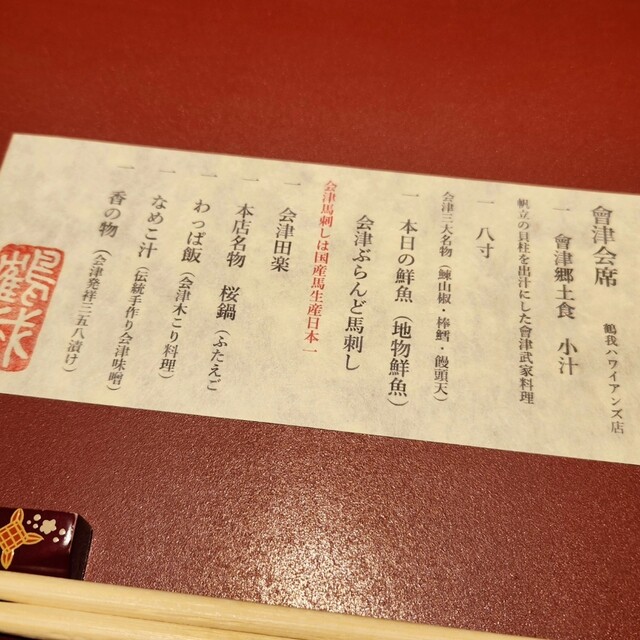 會津会席
鶴我ハワイアンズ店
一 會津郷土食 小汁
帆立の貝柱を出汁にした會津武家料理
一 八寸
会津三大名物（鰊山椒・棒鱈・饅頭天）
一 本日の鮮魚（地物鮮魚）
会津ぶらんど馬刺し
会津馬刺しは国産馬生産日本一
一 会津田楽
一 本店名物 桜鍋（ふたえご）
一 わっぱ飯（会津木こり料理）
一 なめこ汁（伝統手作り会津味噌）
一 香の物（会津発祥三五八漬け）